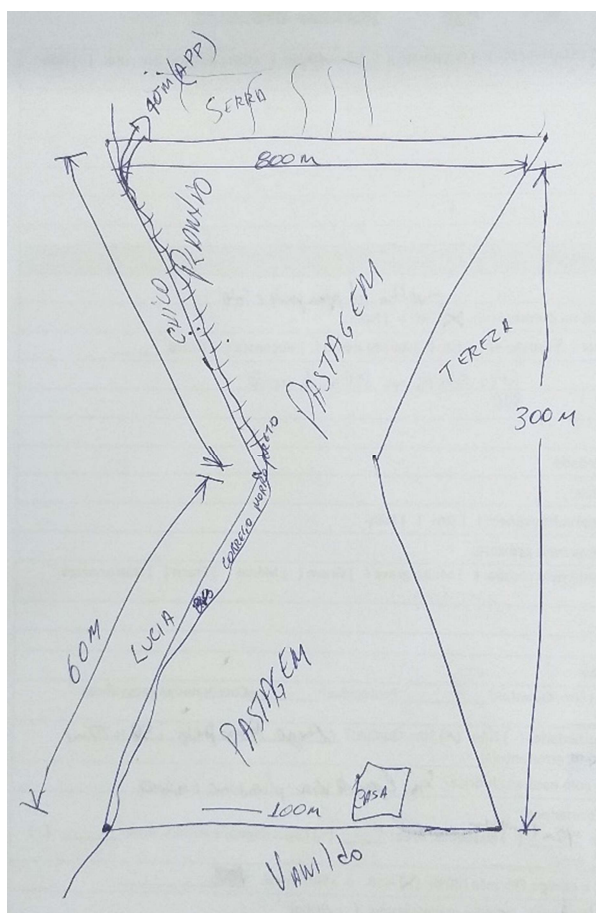 40m(APP)
SERRA
800M
CHICO
RIDAVLIO
PASTAGEM
TEREZA
300M
CORREGO MORRO PRETO
LUCIA
60M
PASTAGEM
CASA
100M
VANILDO